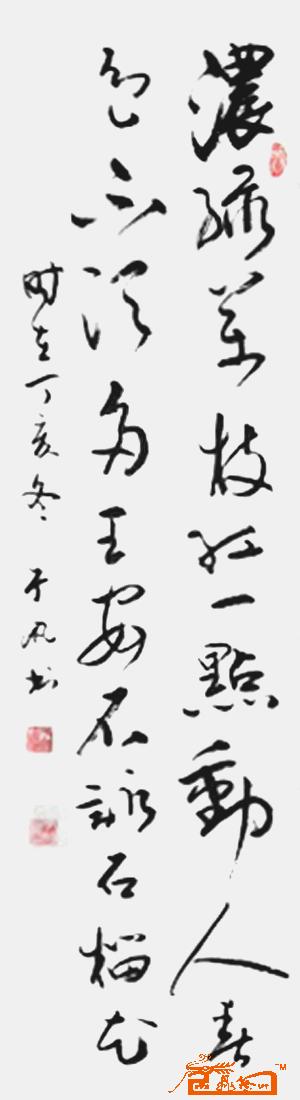 濃綠萬枝紅一點動人春
色不須多王安石詠石榴花
时在丁亥冬 于书